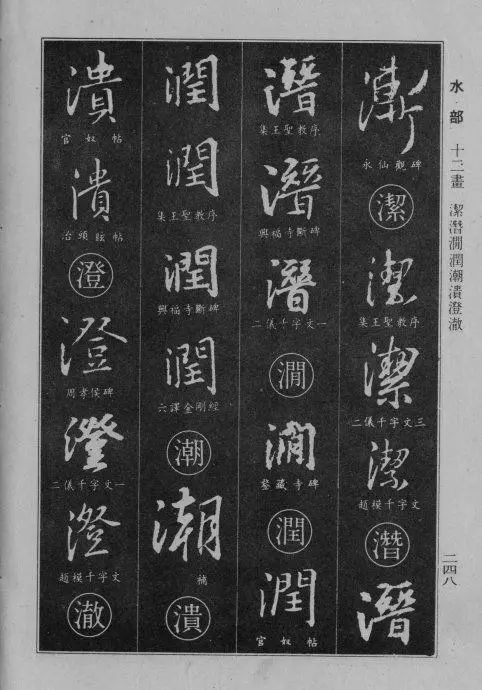 水部 十二畫 潔潛澗潤潮潰澄澈
二四八
漸
永仙觀碑
潔
潔
集王聖教序
潔
二儀千字文三
潔
趙模千字文
潛
潛
潛
集王聖教序
潛
興福寺斷碑
潛
二儀千字文一
澗
澗
鑿藏寺碑
潤
潤
官奴帖
潤
潤
集王聖教序
潤
興福寺斷碑
潤
六譯金剛經
潮
潮
補
潰
潰
官奴帖
潰
治頭眩帖
澄
澄
周孝侯碑
澄
二儀千字文一
澄
趙模千字文
澈